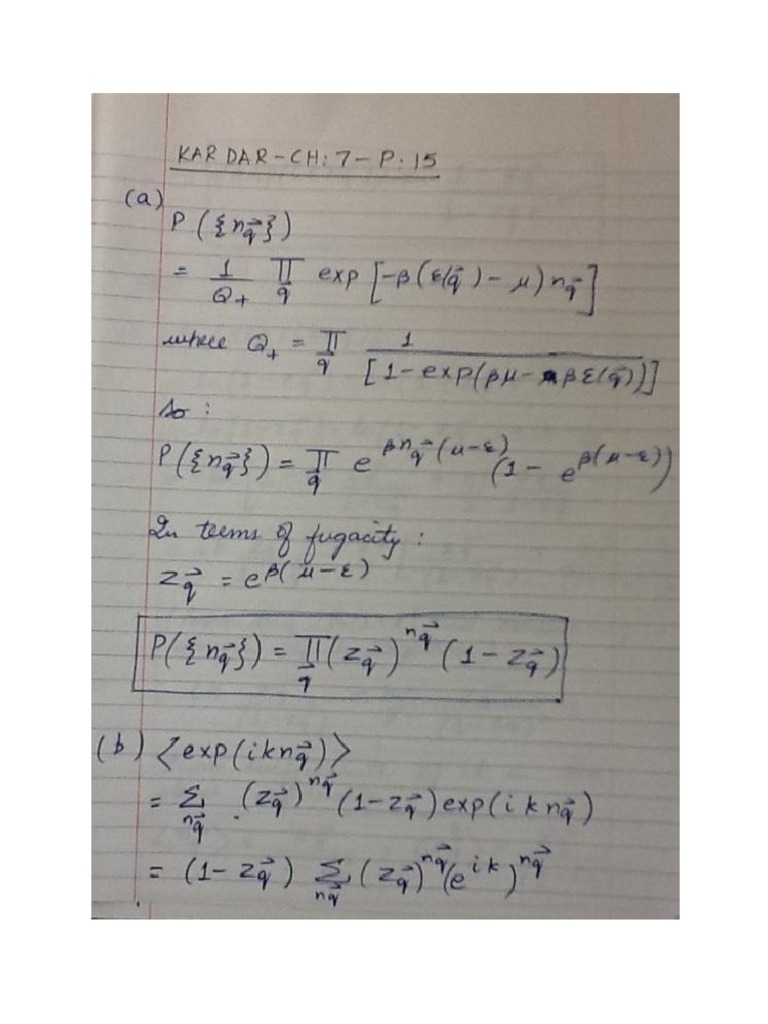 KARDAR-CH:7-P:15
(a)
P({n_{\vec{q}}})
= \frac{1}{Q_+} \prod_{\vec{q}} exp[-β(ε(\vec{q})-μ)n_{\vec{q}}]
where Q_+ = \prod_{\vec{q}} \frac{1}{[1-exp(βμ-βε(\vec{q}))]}
So :
P({n_{\vec{q}}}) = \prod_{\vec{q}} e^{βn_{\vec{q}}(μ-ε)} (1- e^{β(μ-ε)})
In terms of fugacity :
z_{\vec{q}} = e^{β(μ-ε)}
P({n_{\vec{q}}}) = \prod_{\vec{q}} (z_{\vec{q}})^{n_{\vec{q}}} (1-z_{\vec{q}})
(b) ⟨exp(ikn_{\vec{q}})⟩
= \sum_{n_{\vec{q}}} (z_{\vec{q}})^{n_{\vec{q}}} (1-z_{\vec{q}}) exp(ikn_{\vec{q}})
= (1-z_{\vec{q}}) \sum_{n_{\vec{q}}} (z_{\vec{q}})^{n_{\vec{q}}} (e^{ik})^{n_{\vec{q}}}